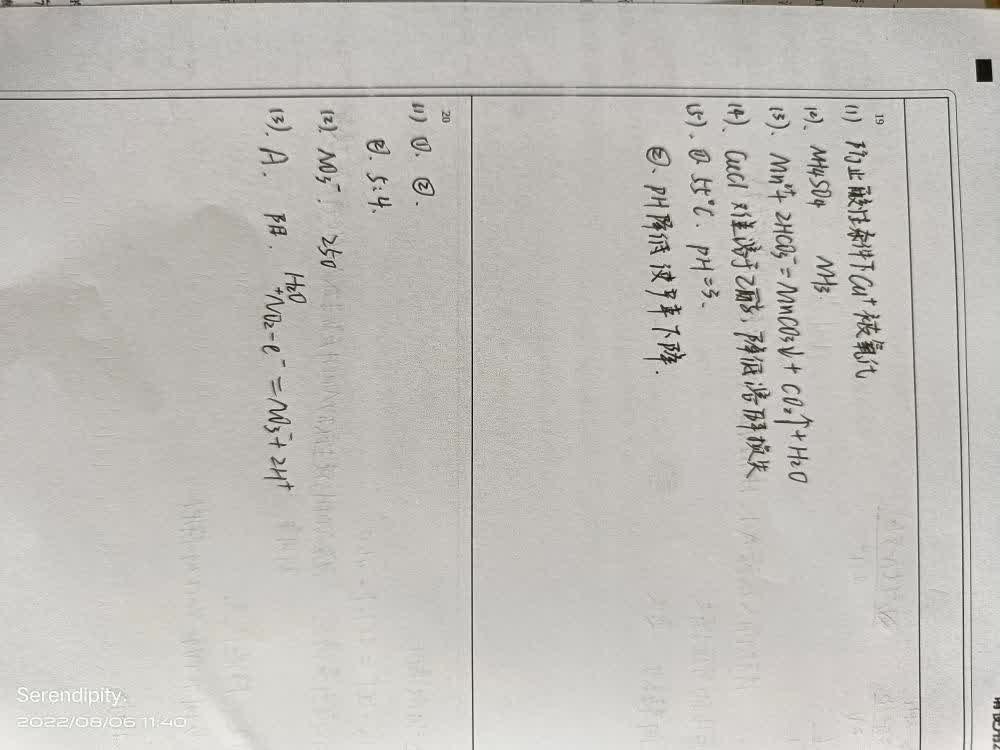 19
(1) 防止酸性条件下Cu⁺被氧化
(2). NH4SO4 NH3.
(3). Mn²⁺+2HCO3⁻=MnCO3↓+CO2↑+H2O
(4). CuCl难溶于乙醇,降低溶解损失
(5). ①. 55℃. pH=3.
②. pH降低使产率下降.
20
(1) ①. ②.
②. 5:4.
(2). NO3⁻. 250
(3). A. 阳. H2O+NO2-e⁻=NO3⁻+2H⁺
Serendipity.
2022/08/06 11:40